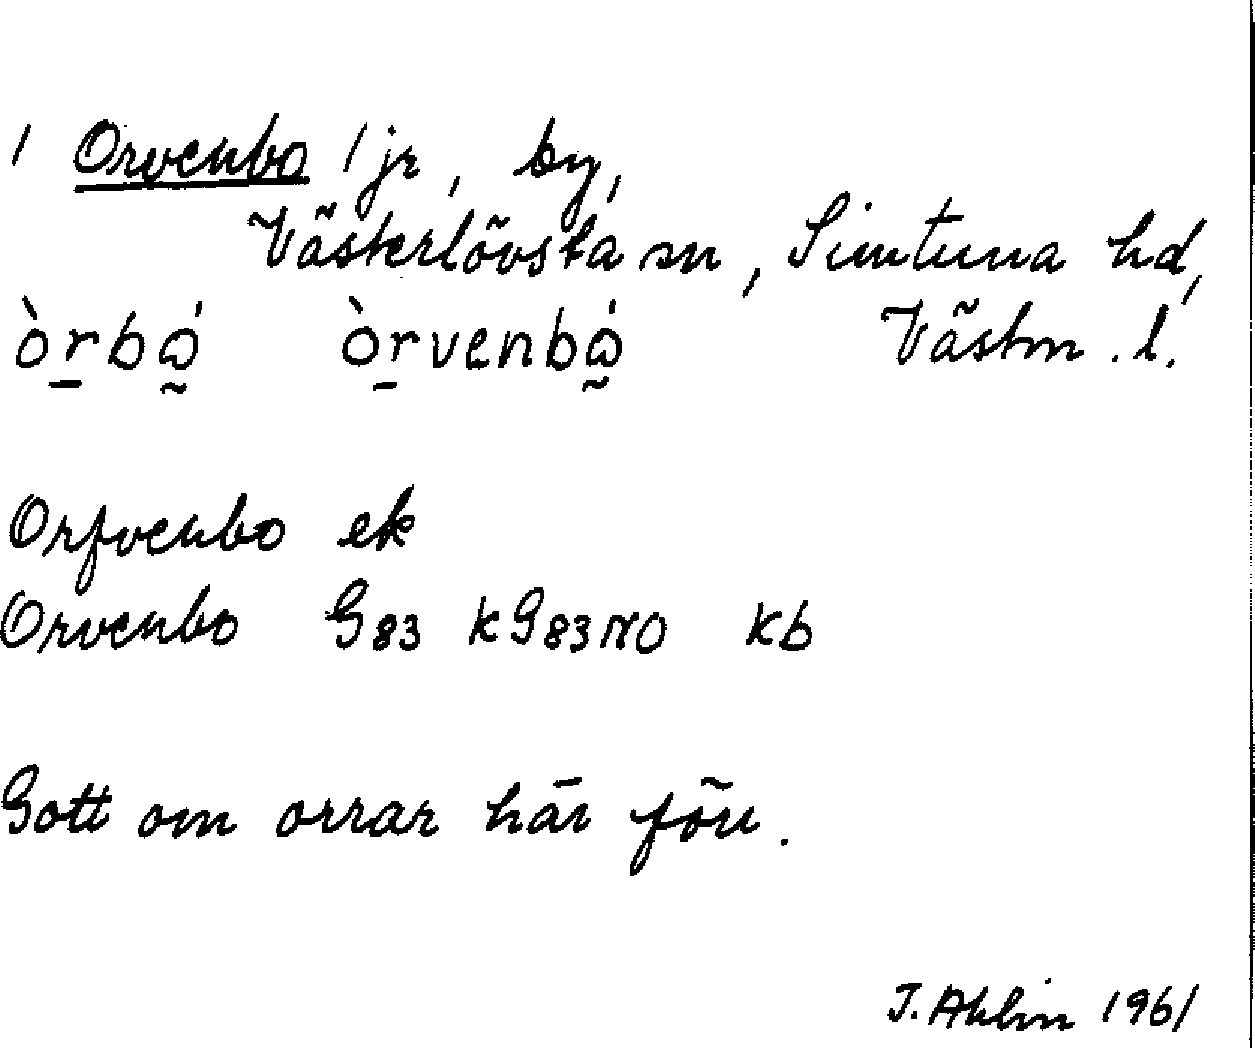 / Orvenbo / jr, by,
Västerlövsta sn, Simtuna hd,
òrbó òrvenbó Västm. l.
Orfvenbo ek
Orvenbo G83 kG83NO kb
Gott om orrar här förr.
J. Ahlin 1961